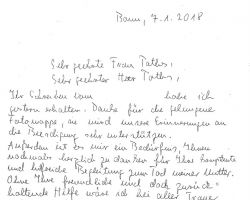 Bonn, 7.1.2018
Sehr geehrte Frau Pathos,
Sehr geehrter Herr Pathos,
Ihr Schreiben vom habe ich
gestern erhalten. Danke für die gelungene
Fotomappe, sie wird unsere Erinnerungen an
die Beerdigung sehr unterstützen.
Außerdem ist es mir ein Bedürfnis, Ihnen
nochmals herzlich zu danken für Ihre kompetente
und hilfreiche Begleitung zum Tod meiner Mutter.
Ohne Ihre freundliche und doch zurück-
haltende Hilfe wäre ich bei aller Trauer